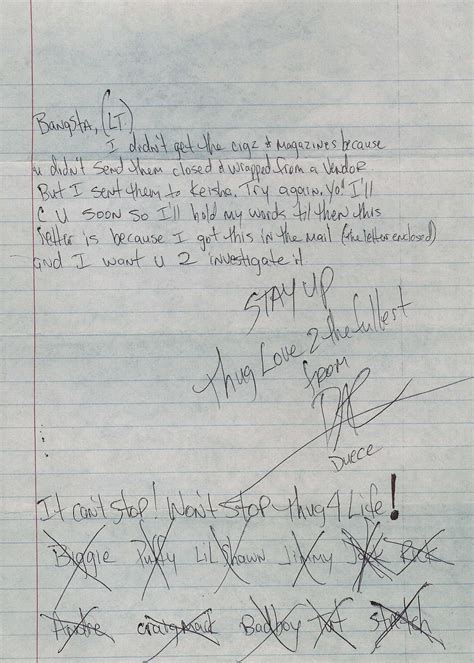 Bangsta, (LT)
I didn't get the cigz & magazines because
u didn't send them closed & wrapped from a vendor
But I sent them to Keisha. Try again. Yo! I'll
C U soon so I'll hold my words til then this
letter is because I got this in the mail (the letter enclosed)
and I want u 2 investigate it
STAY UP
thug Love 2 the fullest
from
Duece
It can't stop! Won't Stop thug 4 Life!
Biggie Puffy Lil Shawn Jimmy Jake Rick
Andre craig mack Badboy Tut stretch